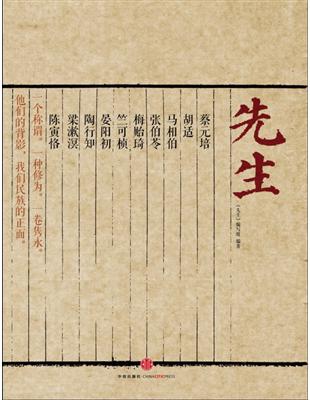 先生
《先生》编写组 编著
蔡元培
胡适
马相伯
张伯苓
梅贻琦
竺可桢
晏阳初
陶行知
梁漱溟
陈寅恪
一个称谓。一种修为。一卷隽永。
他们的背影,我们民族的正面。
中信出版社·CHINACITICPRESS